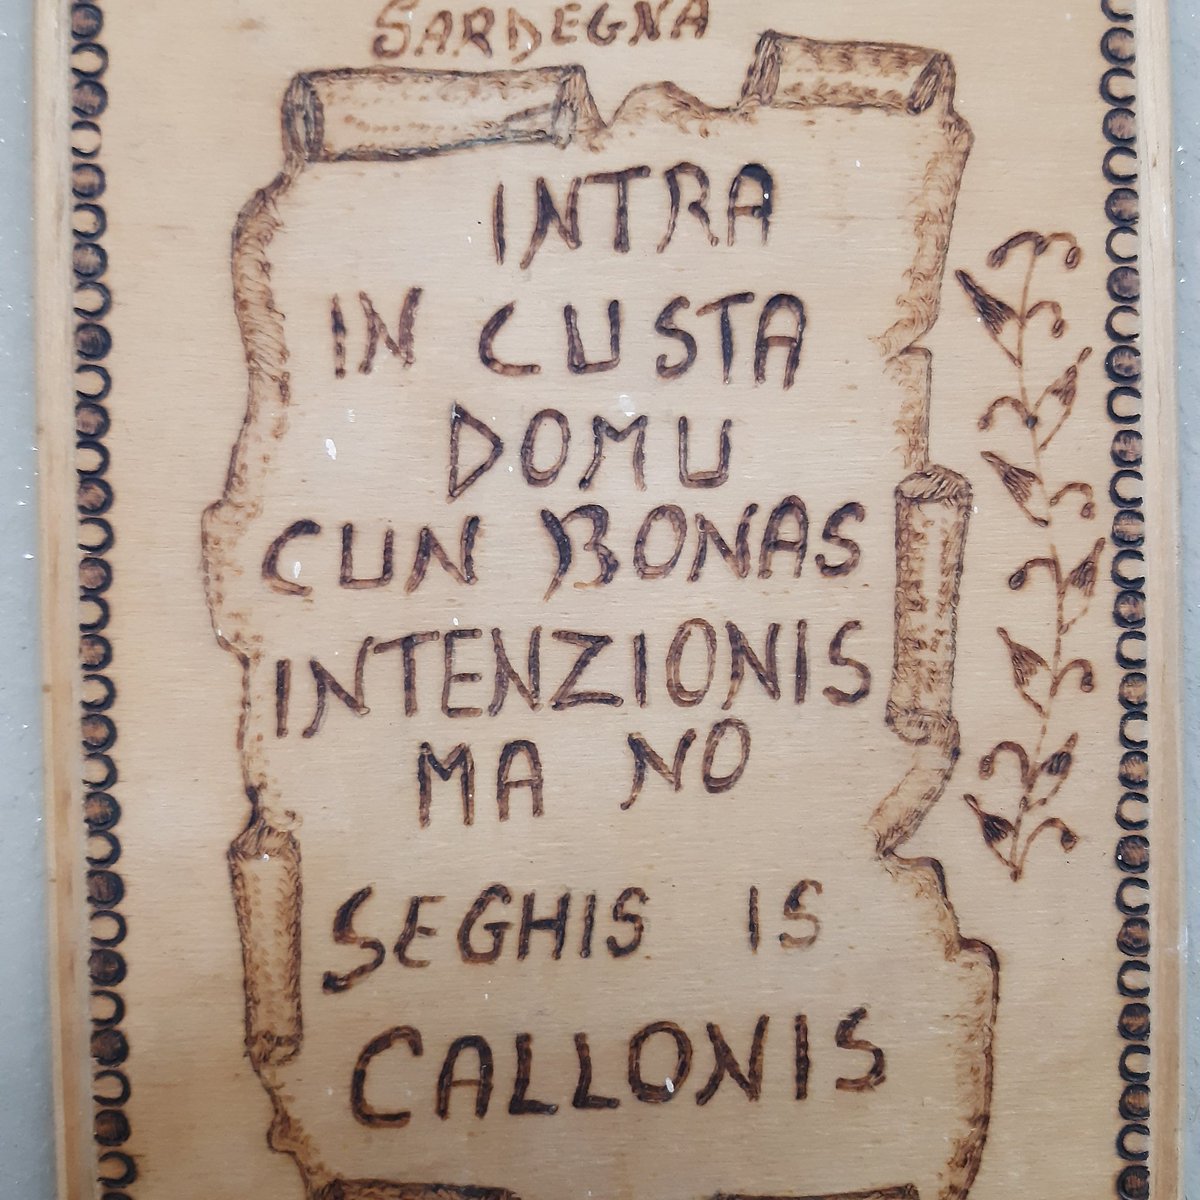 SARDEGNA
INTRA
IN CUSTA
DOMU
CUN BONAS
INTENZIONIS
MA NO
SEGHIS IS
CALLONIS